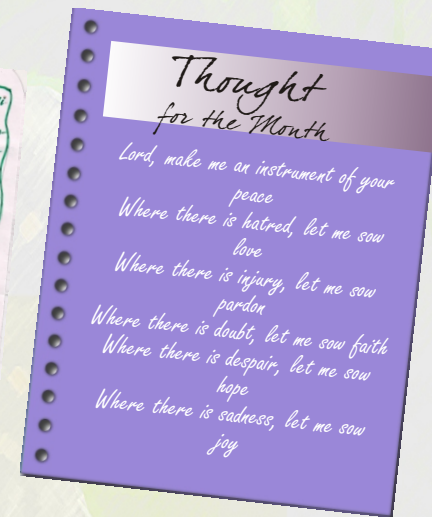 Thought
for the Month
Lord, make me an instrument of your
peace
Where there is hatred, let me sow
love
Where there is injury, let me sow
pardon
Where there is doubt, let me sow faith
Where there is despair, let me sow
hope
Where there is sadness, let me sow
joy